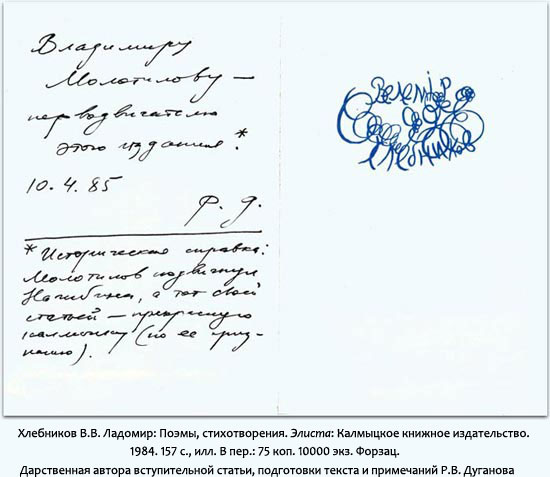 Владимиру
Молотилову —
перводвигателю
этого издания.*
10.4.85
Р. Д.
* Историческая справка:
Молотилов подвигнул
Нагибина, а тот своей
статьей — прекрасную
калмычку (по ее приз-
нанию).
Велемiр
Хлебников
Хлебников В.В. Ладомир: Поэмы, стихотворения. Элиста: Калмыцкое книжное издательство.
1984. 157 с., илл. В пер.: 75 коп. 10000 экз. Форзац.
Дарственная автора вступительной статьи, подготовки текста и примечаний Р.В. Дуганова